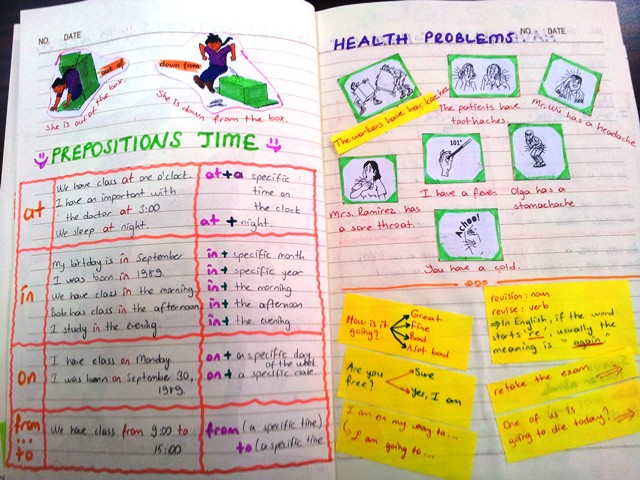 NO. DATE
out of
She is out of the box.
down from
She is down from the box.
PREPOSITIONS TIME
at
We have class at one o'clock.
I have an important with
the doctor at 3:00
We sleep at night.
at + a specific
time on
the clock
at + night.
in
My bitday is in September
I was born in 1989.
We have class in the morning
Bob has class in the afternoon
I study in the evening
in + specific month
in + specific year
in + the morning
in + the afternoon
in + the evening
on
I have class on Monday
I was born on September 30,
1989
on + a specific day
of the week
on + a specific date.
from
...
to
We have class from 9:00 to
15:00
from (a specific time)
to (a specific time
NO. DATE
HEALTH PROBLEMS
The workers have backaches
The patients have
toothaches.
Mr. Wu has a headache
101°
Mrs. Ramirez has
a sore throat.
I have a fever.
Olga has a
stomachache
Achoo!
You have a cold.
How is it
going?
Great
Fine
Bad
Not bad
Are you
free?
Sure
Yes, I am
I am on my way to...
I am going to...
revision: noun
revise: verb
In English, if the word
starts "re", usually the
meaning is "again"
retake the exam
One of us is
going to die today?